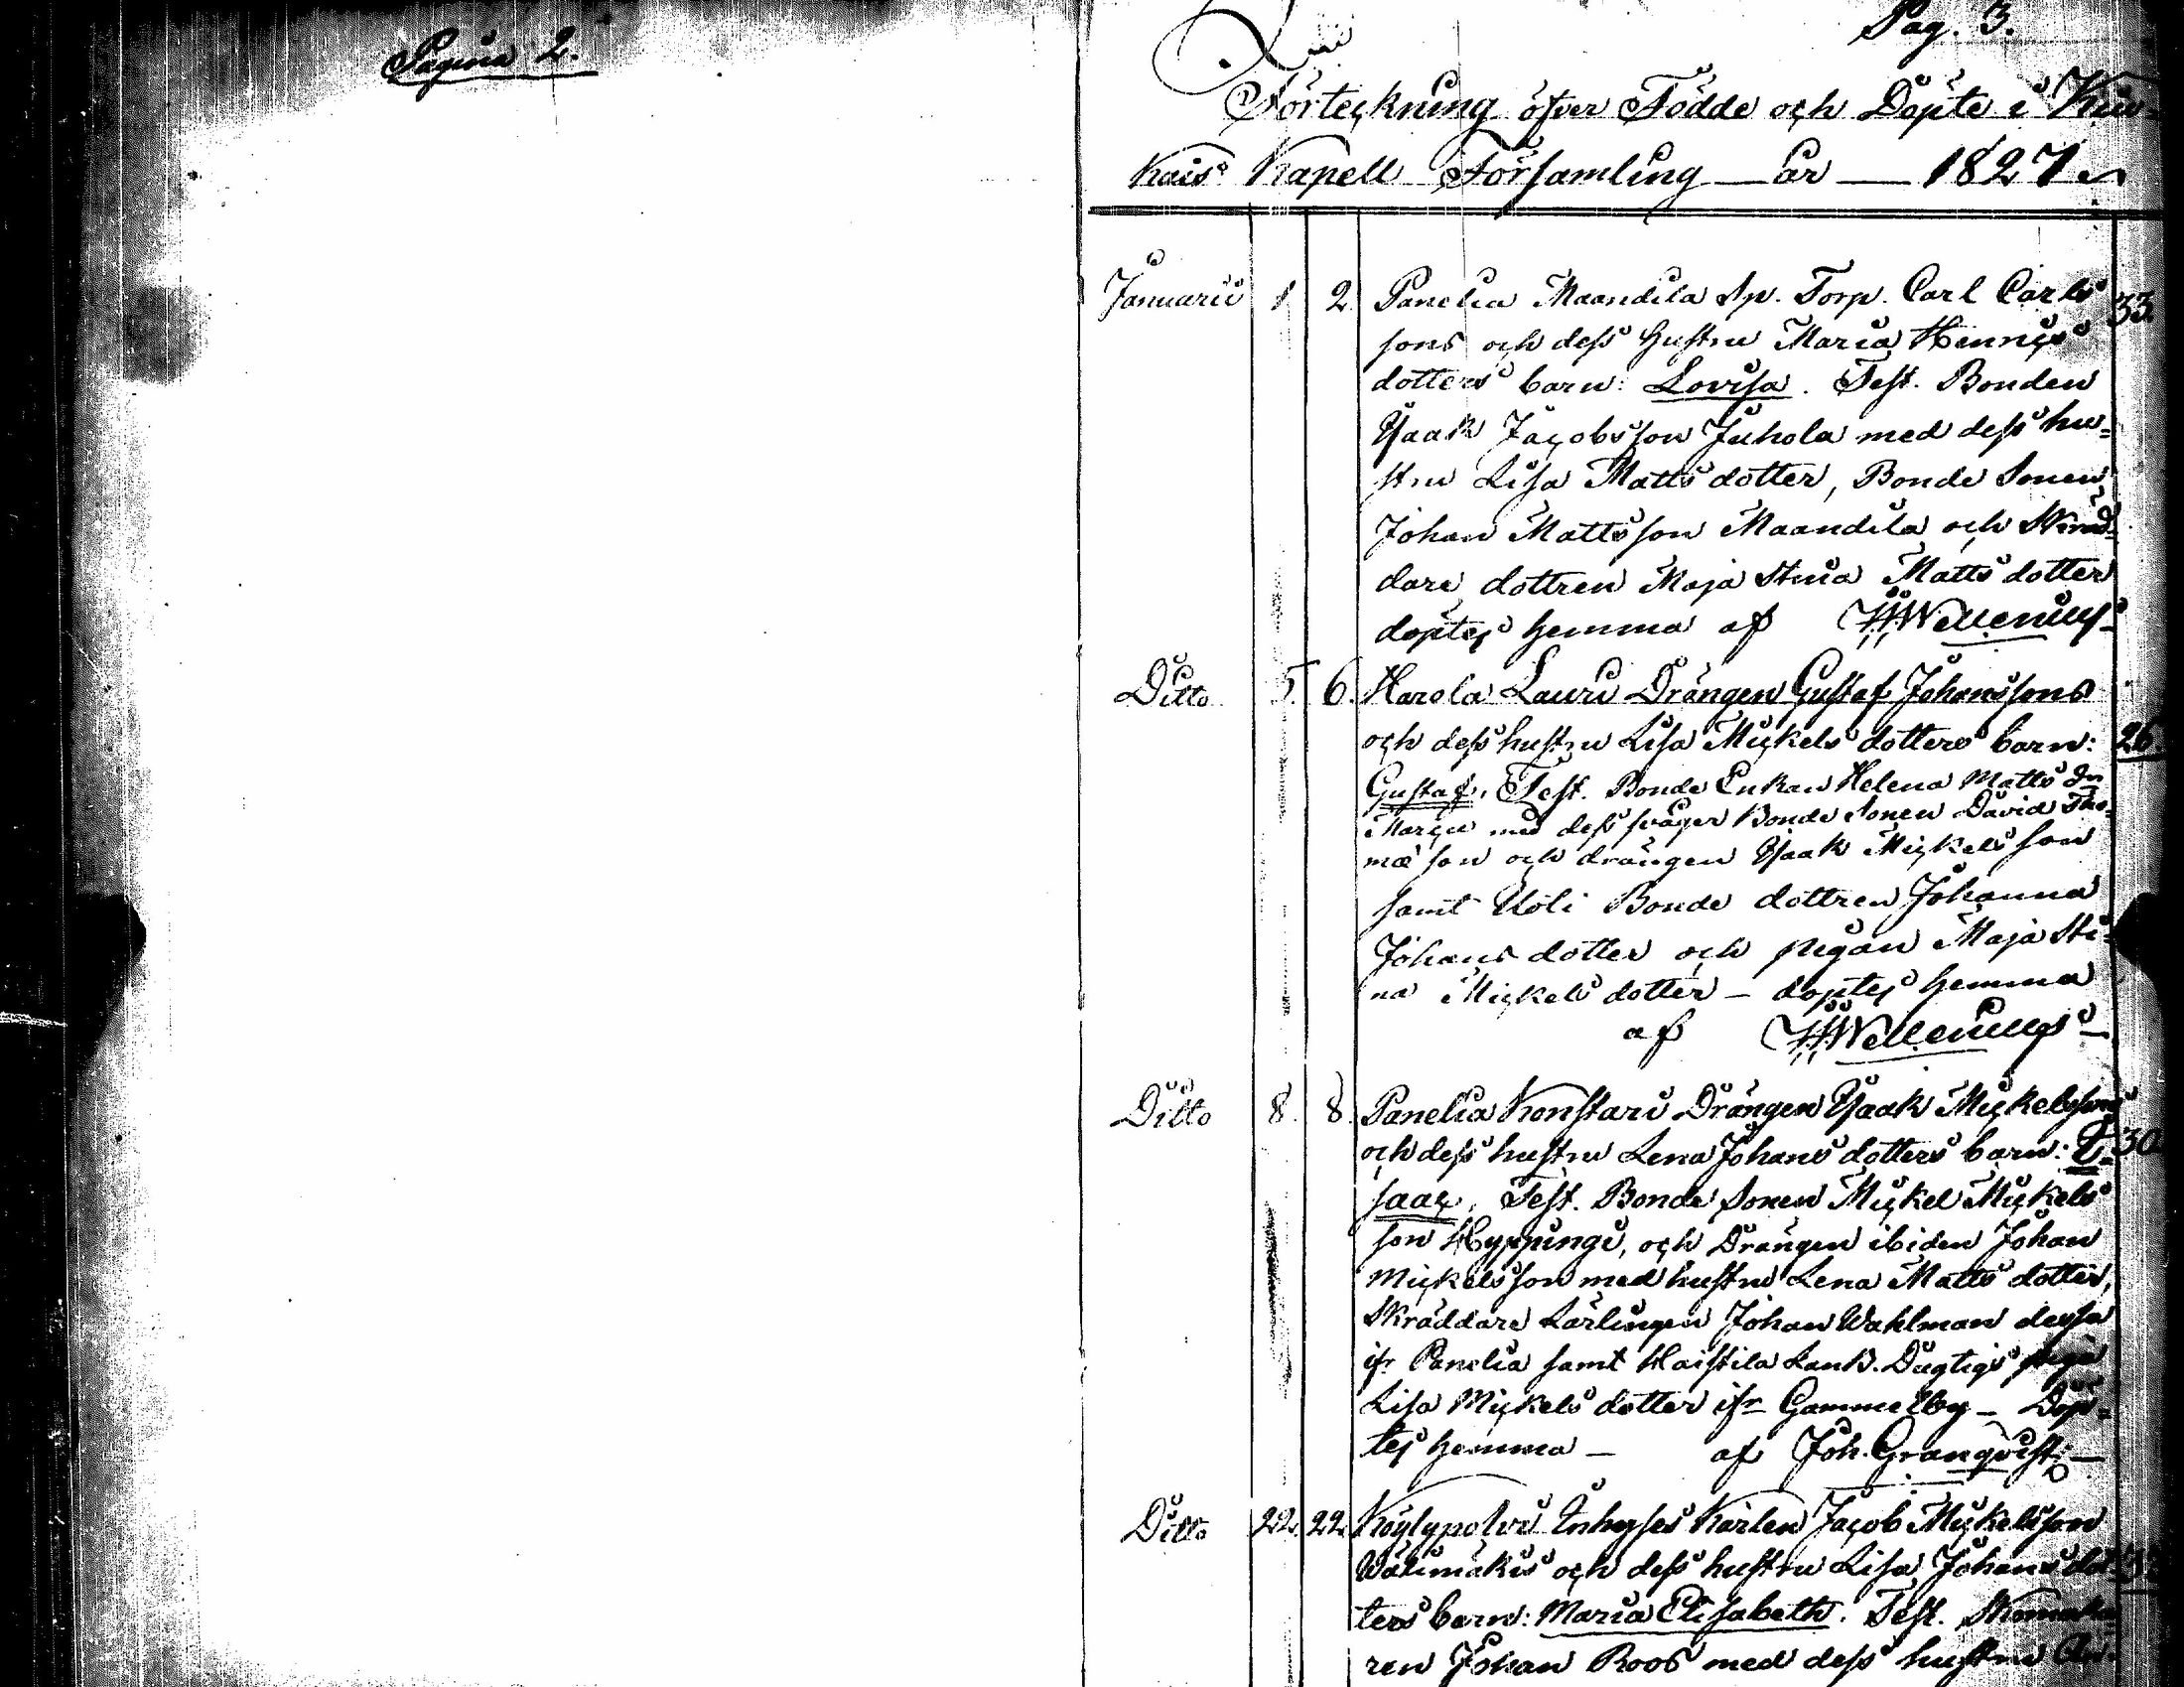 Pagina 2.
Pag. 3.
Förteckning öfver Födde och Döpte i Kiu=
kais Kapell Församling — år — 1827
Januarii 1 2 Panelia Maandila Sp. Torp. Carl Carls 33.
sons och dess hustru Maria Henrics
dotters barn: Lovisa. Test. Bonden
Isaak Jacobsson Juhola med dess hu=
stru Lisa Matts dotter, Bonde Sonen
Johan Mattsson Maandila och Skräd=
dare dottren Maja Stina Matts dotter
döptes hemma af Wellenius
Ditto 5. 6. Harola Lauri Drängen Gustaf Johanssons
och dess hustru Lisa Mickels dotters barn: 26.
Gustaf. Test. Bonde Enkan Helena Matts Dr
med dess svåger Bonde Sonen David Tho=
mæ son och drängen Isaak Mickels son
samt Uoti Bonde dottren Johanna
Johans dotter och pigan Maja Sti=
na Mickels dotter — döptes hemma
af Wellenius
Ditto 8. 8. Panelia Konstari Drängen Isaak Mickelssons
och dess hustru Lena Johans dotters barn: I= 30
saac. Test. Bonde Sonen Mickel Mickels
son Hyppingi, och Drängen ibiden Johan
Mickelsson med hustru Lena Matts dotter,
Skräddare Lärlingen Johan Wahlman dessa
ifr Panelia samt Haistila Dugtigs piga
Lisa Mickels dotter ifr Gammelby — Döp=
tes hemma — af Joh. Granqvist
Ditto 22. 22. Köylypolvi Inhyses Karlen Jacob Mickelsson
Wälimäkis och dess hustru Lisa Johans dot
ters barn: Maria Elisabeth. Test. Skomaka
ren Johan Roos med dess hustru An=